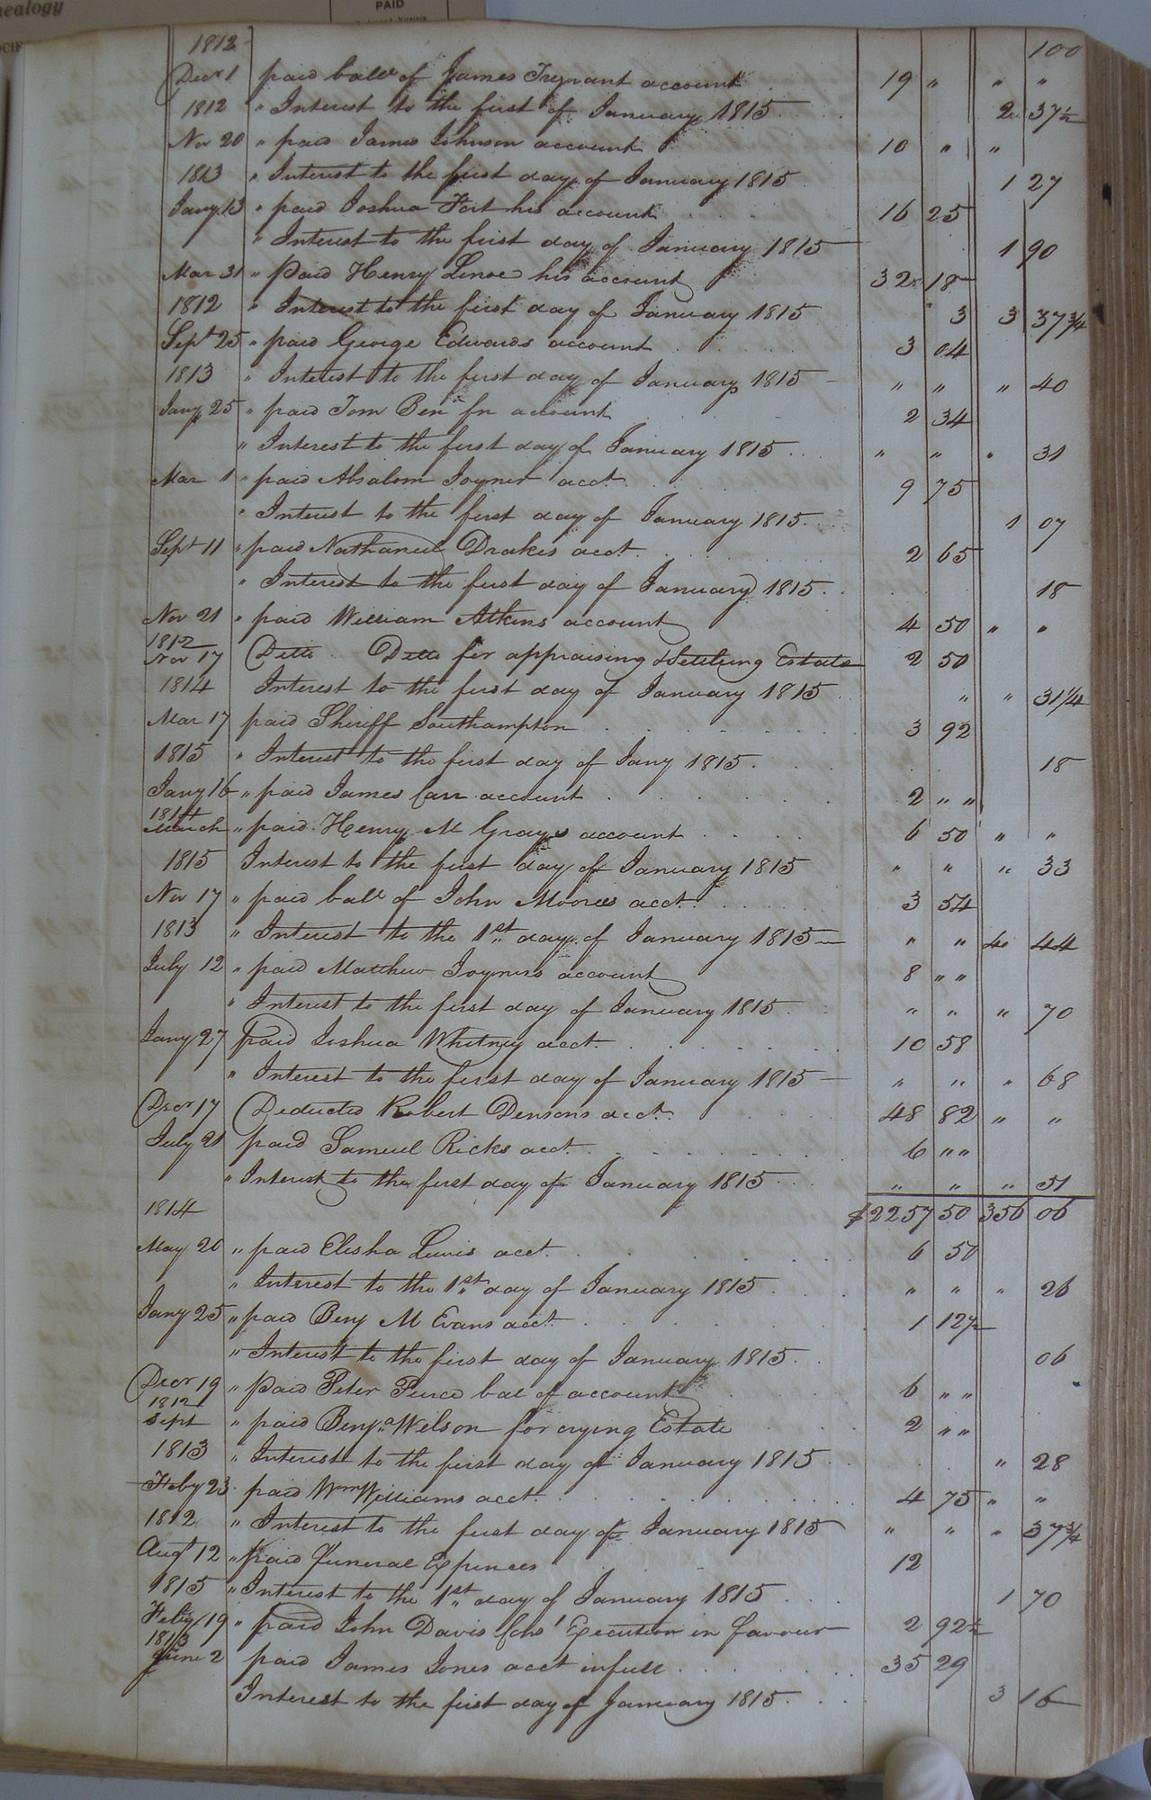 nealogy
PAID
1812 100
Decr 1 paid balce of James Trezvant account 19 " " "
1812 " Interest to the first of January 1815 2 37½
Nov 20 " paid James Johnson account 10 " "
1813 " Interest to the first day of January 1815 1 27
Jany 13 " paid Joshua Fort his account 16 25
" Interest to the first day of January 1815 1 90
Mar 31 " Paid Henry his account 32 18
1812 " Interest to the first day of January 1815 3 3 37¾
Sept 25 " paid George Edwards account 3 04
1813 " Interest to the first day of January 1815 " " " 40
Jany 25 " paid Tom account 2 34
" Interest to the first day of January 1815 " " " 31
Mar 1 " paid Absalom Joyner acct 9 75
" Interest to the first day of January 1815 1 07
Sept 11 " paid Nathaniel Drakes acct 2 65
" Interest to the first day of January 1815 18
Nov 21 " paid William Atkins account 4 50 " "
1812
Nov 17 Ditto Ditto for appraising & Settling Estate 2 50
1814 Interest to the first day of January 1815 " " 31¼
Mar 17 paid Sheriff Southampton 3 92
1815 " Interest to the first day of Jany 1815 18
Jany 16 " paid James Carr account 2 " "
1814
March " paid Henry M Grays account 6 50 " "
1815 Interest to the first day of January 1815 " " " 33
Nov 17 " paid balce of John Moores acct 3 54
1813 " Interest to the 1st day of January 1815 " " 4 44
July 12 " paid Matthew Joyners account 8 " "
" Interest to the first day of January 1815 " " " 70
Jany 27 paid Joshua Whitney acct 10 58
" Interest to the first day of January 1815 " " " 68
Decr 17 Deducted Robert Densons acct 48 82 " "
July 21 paid Samuel Ricks acct 6 " "
" Interest to the first day of January 1815 " " " 51
1814 $2257 50 356 06
May 20 " paid Elisha Lewis acct 6 50
" Interest to the 1st day of January 1815 " " " 26
Jany 25 " paid Benj M Evans acct 1 12½
" Interest to the first day of January 1815 06
Decr 19 " paid Peter Peirce bal of account 6 " "
1812
Sept " paid Benja Wilson for crying Estate 2 " "
1813 " Interest to the first day of January 1815 " 28
Feby 23 paid Wm Williams acct 4 75 " "
1812 " Interest to the first day of January 1815 " " " 37¾
Augt 12 " paid Funeral Expences 12
1815 " Interest to the 1st day of January 1815 1 70
Feby 19 " paid John Davis Execution in favour 2 92½
1813
June 2 paid James Jones acct in full 35 29
Interest to the first day of January 1815 3 16